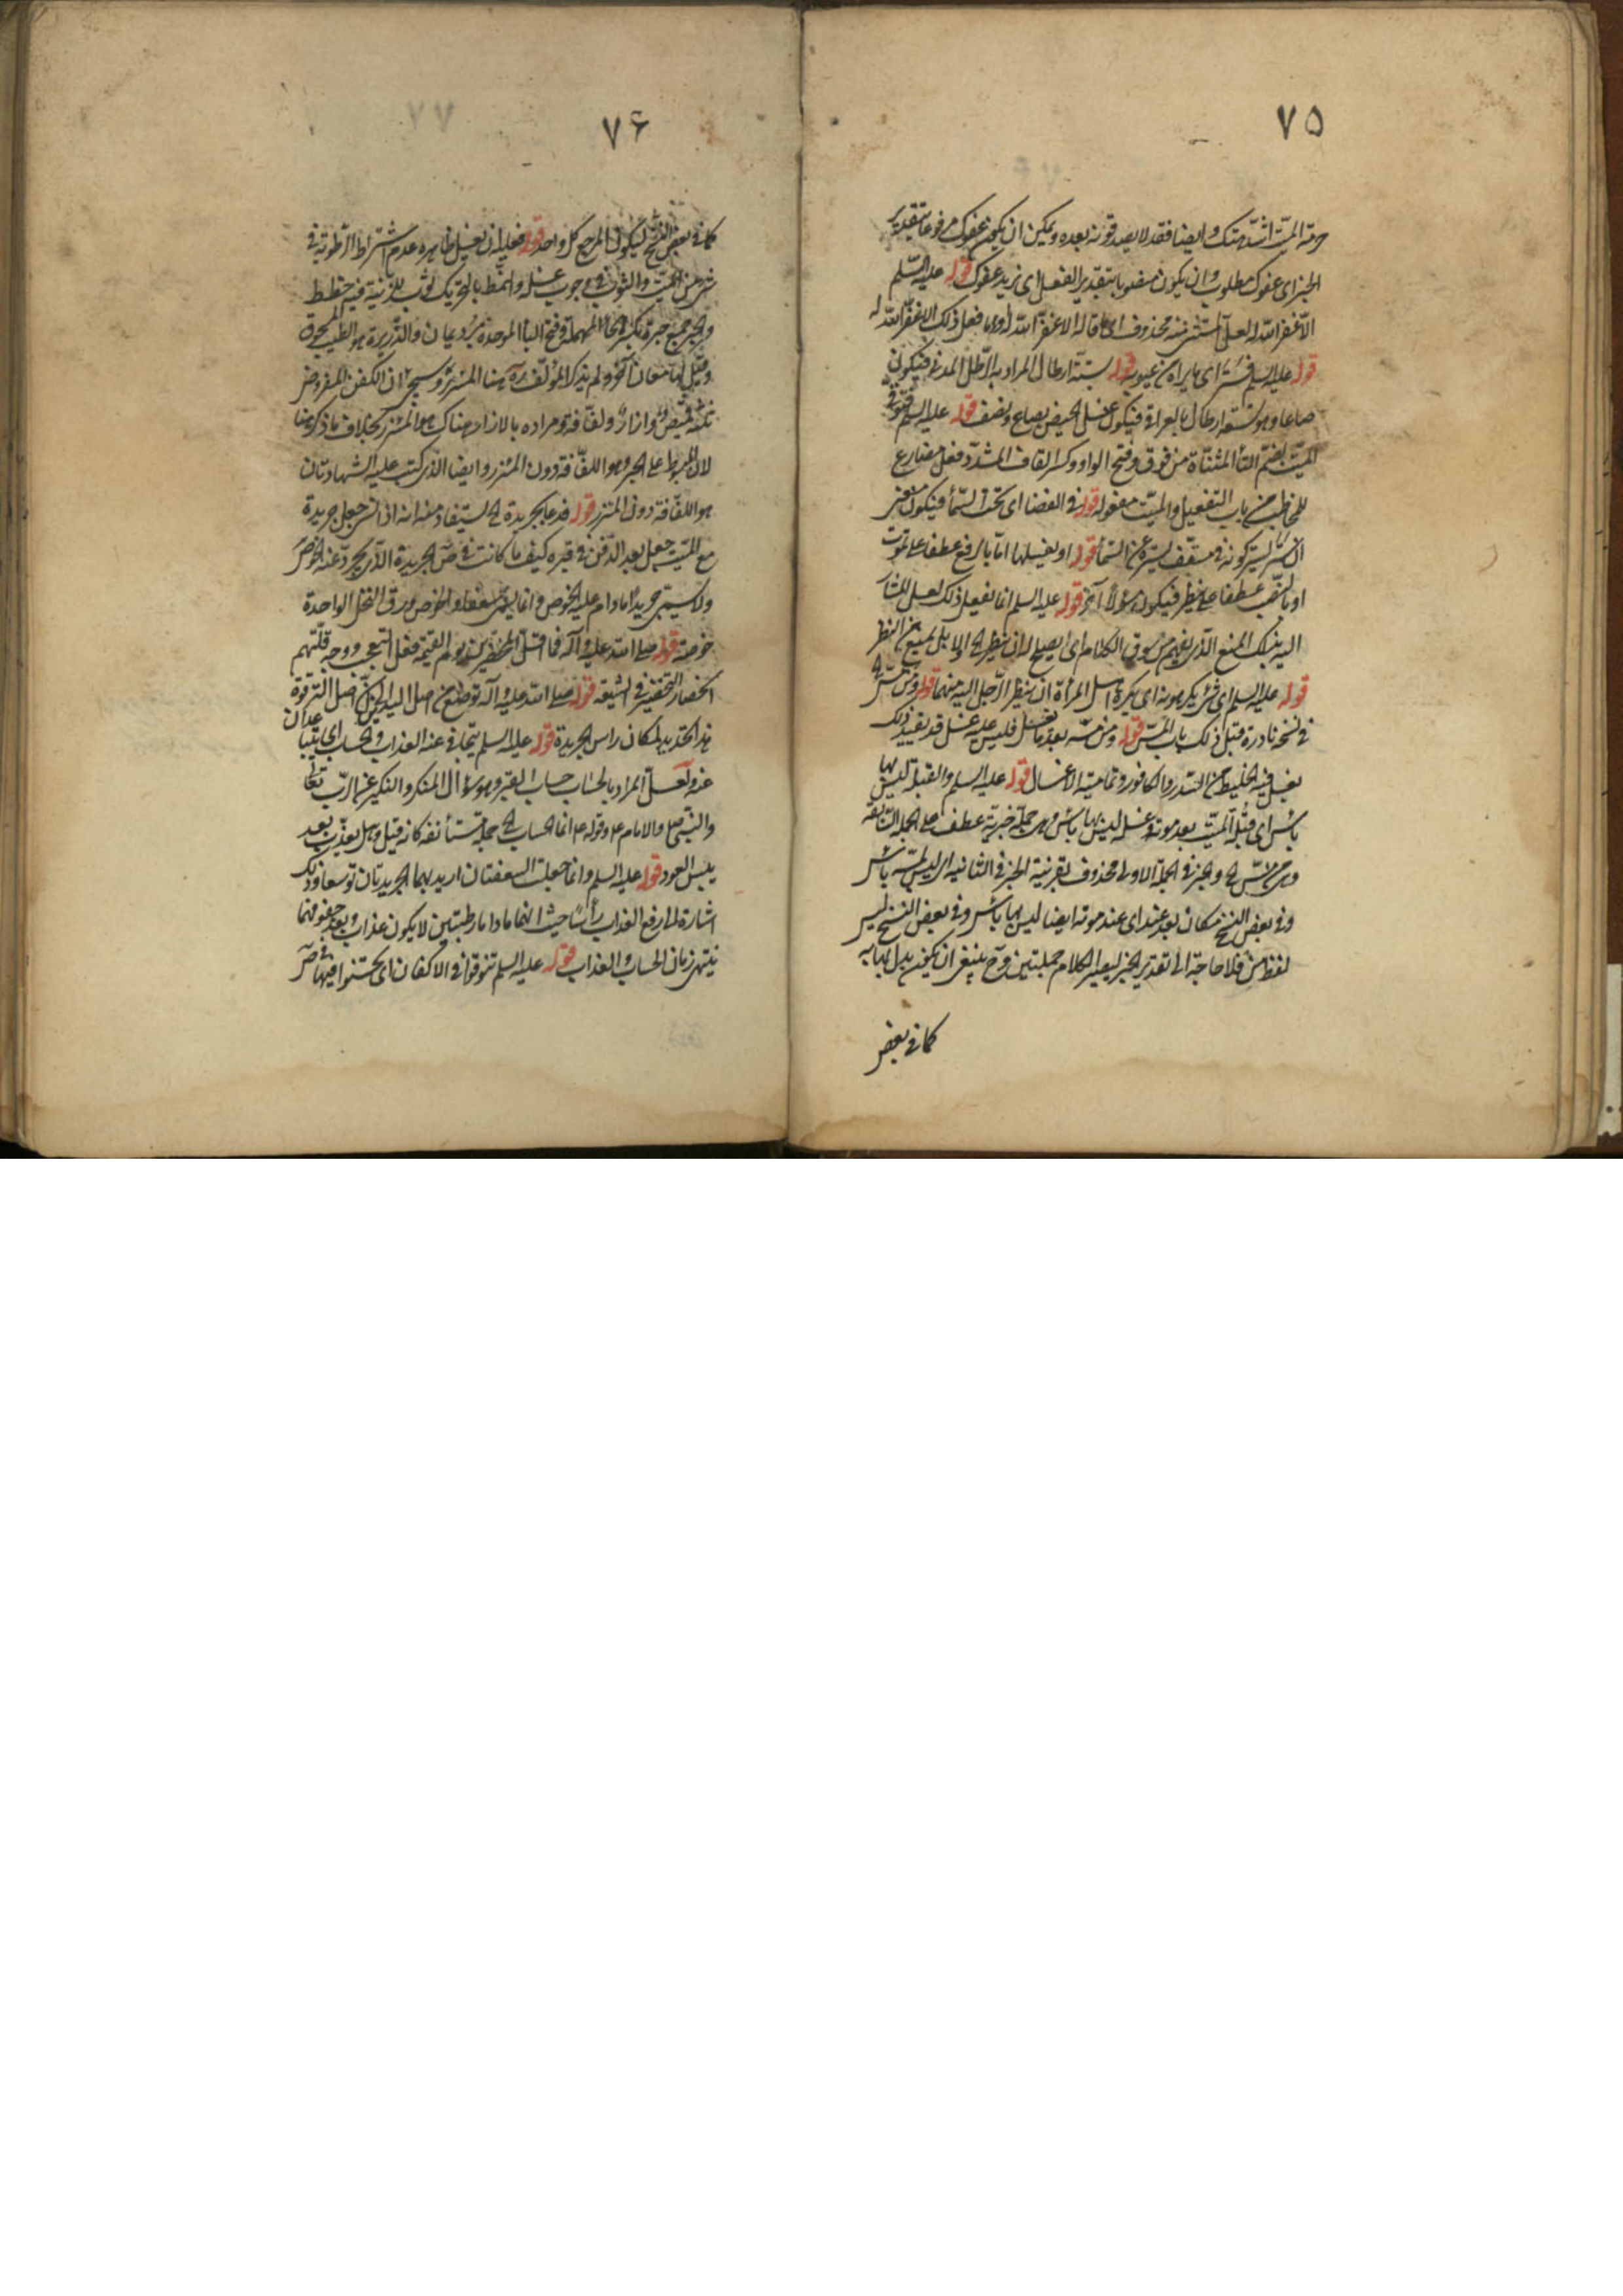 ٧۵
حرمة الميت اشد منك وايضا فقد لا يصيد قوته بعده ويمكن ان يكون عفوك مرفوعا بتقدير
الخبر اى عفوك مطلوب وان يكون منصوبا بتقدير الفعل اى نريد عفوك قوله عليه السلم
الا غفر الله له لعل المستثنى منه محذوف اى ما قاله الا غفر الله له او ما فعل ذلك الا غفر الله له
قوله عليه السلم فستر اى ما يراه من عيوبه قوله ستة ارطال المراد به الرطل المدنى فيكون
صاعا وهو تسعة ارطال بالعراقى فيكون غسل الحيض بصاع ونصف قوله عليه السلم
الميت بضم التاء المثناة من فوق وفتح الواو وكسر القاف المشدد فعل مضارع
للمخاطب من باب التفعيل والميت مفعوله قوله فى الفضا اى تحت السماء فيكون معنى
ان ستر بستر كونه فى مسقف يستره عن السماء قوله او يغسلها اما بالرفع عطفا على تموت
او بالنصب عطفا على ينظر فيكون سؤلا آخر قوله عليه السلم انما يفعل ذلك لعل المشار
اليه بذلك المنع الذى يفهم من سوق الكلام اى ايصلح له ان ينظر الخ او لا بل يمنع من النظر
قوله عليه السلم اى شئ يكرهونه اى يكره اهل المرأة ان ينظر الرجل اليه منها قوله ومن مس الخ
فى نسخة نادرة قبل ذلك باب المس قوله ومن مسه بعد ما يغسل فليس عليه غسل قد يقيد ذلك
بغسل فيه الخليط من السدر والكافور وتمامية الاغسال قوله عليه السلم والقبلة ليس بها
باس اى قبلة الميت بعد موته وغسله ليس بها باس وهى جملة خبرية عطف على الجملة السابقة
وهى من مس الخ والخبر فى الجملة الاولى محذوف بقرينة الخبر فى الثانية اى ليس لمسه باس
وفى بعض النسخ مكان بعد عند اى عند موته ايضا ليس بها باس وفى بعض النسخ ليس
لفظ من فلا حاجة الى تقدير الخبر ليصير الكلام جملتين وح ينبغى ان يكون بدل بها به
كما فى بعض
٧۶
كما فى بعض النسخ ليكون المرجع كل واحد قوله فعليه ان يغسل ظاهره عدم اشتراط الرطوبة فى
شئ من الميت والثوب فى وجوب غسله والنمط بالتحريك ثوب للزينة فيه خطط
والحبر جمع حبرة بكسر الحاء المهملة وفتح الباء الموحدة برد يمان والذريرة هو الطيب المسحوق
وقيل لها معان اخر ولم يذكر المؤلف ره هنا المئزر وسيجئ ان الكفن المفروض
ثلثة قميص وازار ولفافة ومراده بالازار هناك هو المئزر بخلاف ما ذكره هنا
لان المبسوط على الحبر هو اللفافة دون المئزر وايضا الذى كتب عليه الشهادتان
هو اللفافة دون المئزر قوله فدعا بجريدة الخ يستفاد منه انه اذا نسى جعل جريدة
مع الميت جعل بعد الدفن فى قبره كيف ما كانت فى ص الجريدة الذى يجرد عنه الخوص
ولا يسمى جريدا ما دام عليه الخوص وانما يسمى سعفا والخوص ورق النخل الواحدة
خوصة قوله صلى الله عليه وآله فما اقل المخضرين يوم القيمة فعل التعجب ووجه قلتهم
انحصار التخضير فى الشيعة قوله صلى الله عليه وآله توضع من اصل اليدين الى اصل الترقوة
هذا تحديد لمكان راس الجريدة قوله عليه السلم يتجافى عنه العذاب والحساب اى يتباعدان
عنه ولعل المراد بالحساب حساب القبر وهو سؤال المنكر والنكير عن الرب تعالى
والنبى ص والامام ع وقوله ع انما الحساب الخ جملة مستأنفة كانه قيل وهل يعذب بعد
يبس العود قوله عليه السلم وانما جعلت السعفتان اريد بهما الجريدتان توسعا وذلك
اشارة الى رفع العذاب رأسا حيث انهما ما داما رطبتين لا يكون عذاب وبعد جفوفهما
ينتهى زمان الحساب والعذاب قوله عليه السلم تنوقوا فى الاكفان اى تحسنوا فيها فى ص